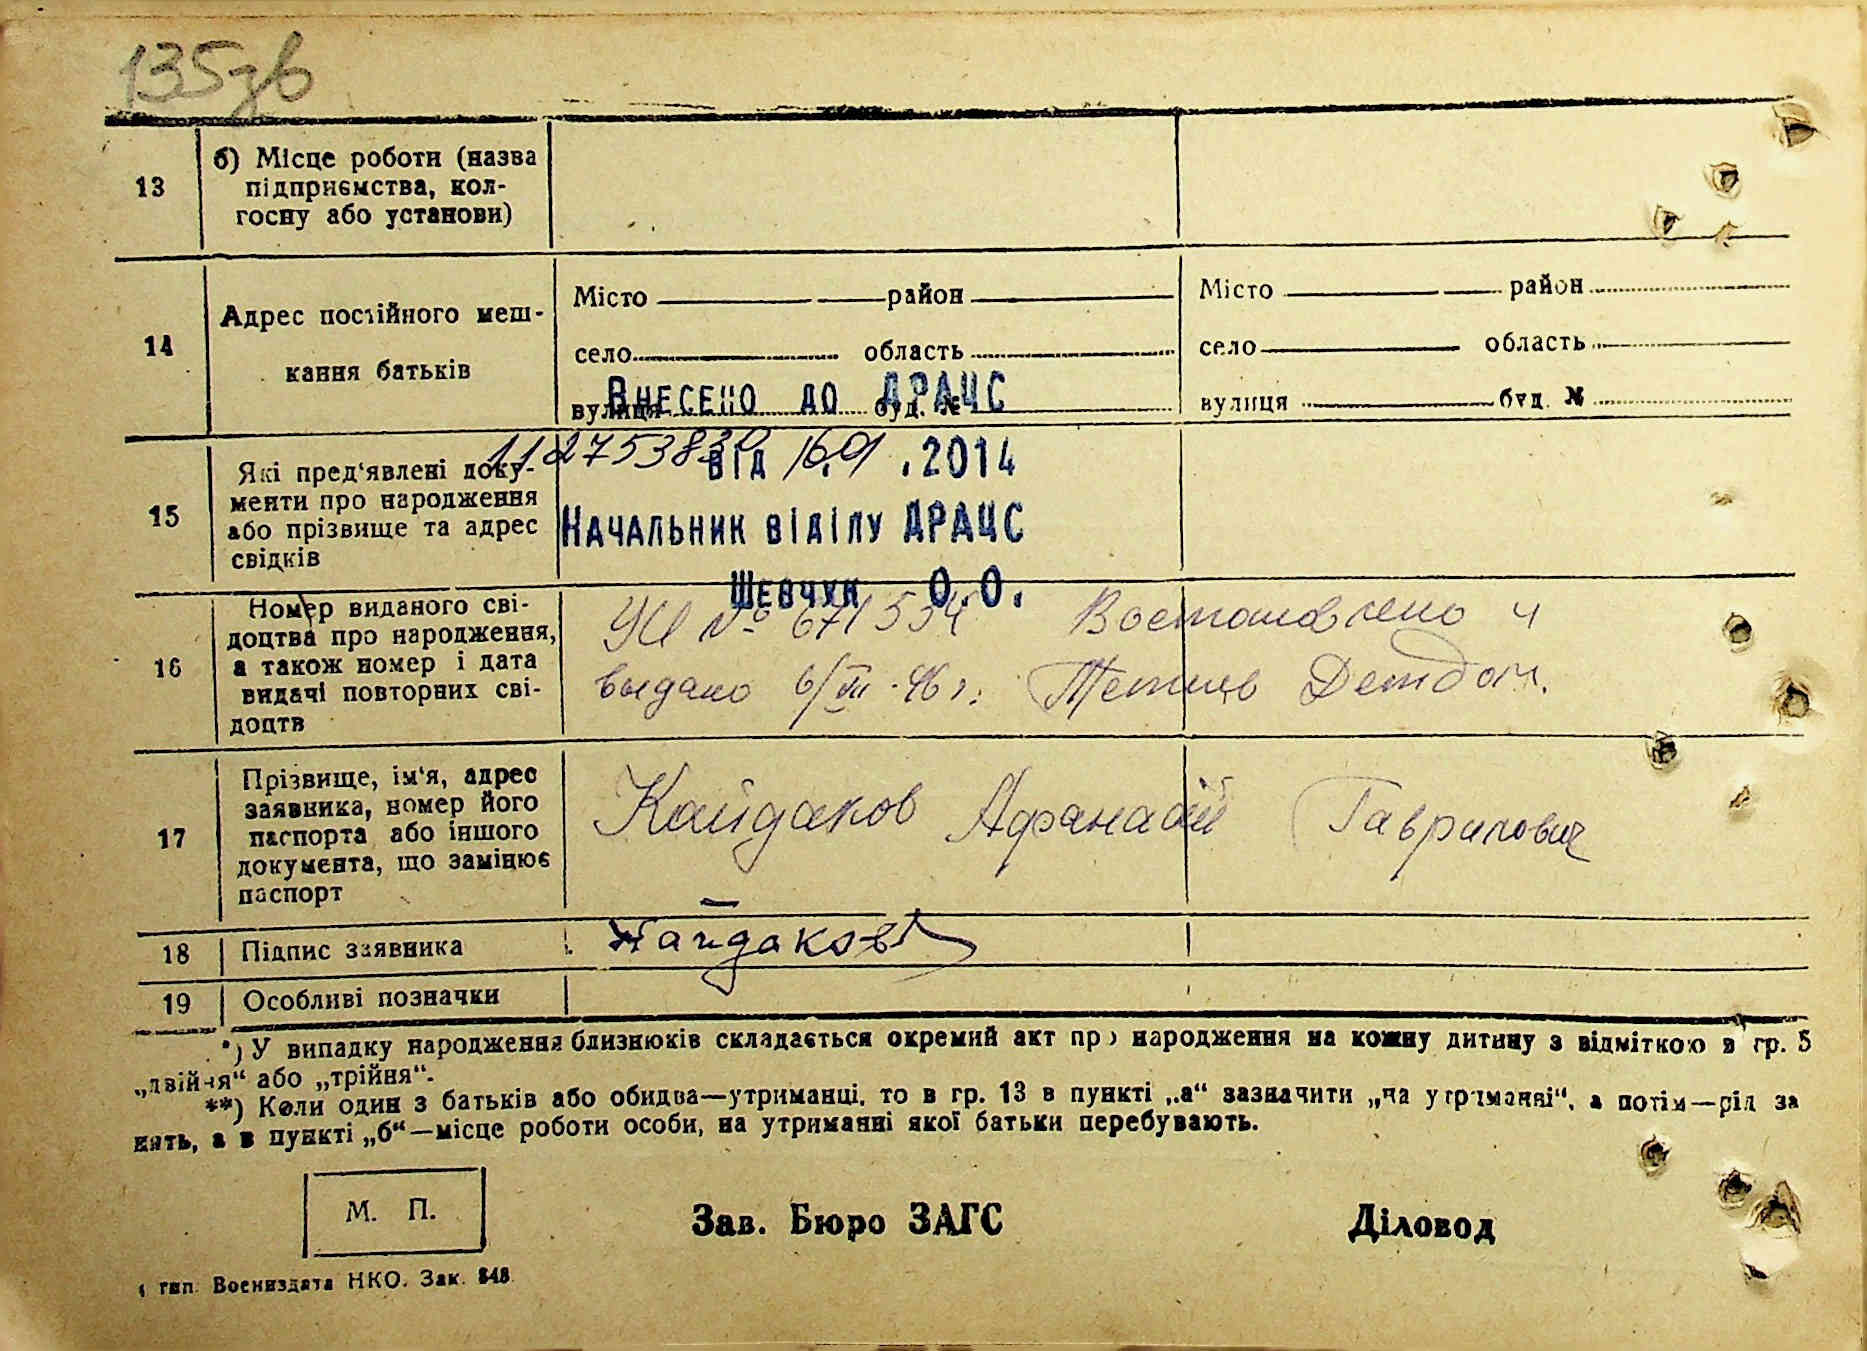 135зв
13
б) Місце роботи (назва
підприємства, кол-
госпу або установи)
14
Адрес постійного меш-
кання батьків
Місто район
село область
вулиця буд. №
Місто район
село область
вулиця буд. №
Внесено до ДРАЦС
112753830 від 16.01.2014
Начальник віділу ДРАЦС
Шевчук О.О.
15
Які пред'явлені доку-
менти про народження
або прізвище та адрес
свідків
16
Номер виданого сві-
доцтва про народження,
а також номер і дата
видачі повторних сві-
доцтв
№ 671534 Востановлено и
выдано 6/VII-46 г. Детдом.
17
Прізвище, ім'я, адрес
заявника, номер його
паспорта або іншого
документа, що замінює
паспорт
Кайдаков Афанасий Гаврилович
18
Підпис заявника
Кайдаков
19
Особливі позначки
*) У випадку народження близнюків складається окремий акт про народження на кожну дитину з відміткою в гр. 5
„двійня“ або „трійня“.
**) Коли один з батьків або обидва—утриманці, то в гр. 13 в пункті „а“ зазначити „на утриманні“, а потім—рід за
нять, а в пункті „б“—місце роботи особи, на утриманні якої батьки перебувають.
М. П.
Зав. Бюро ЗАГС
Діловод
тип. Воениздата НКО. Зак. 848